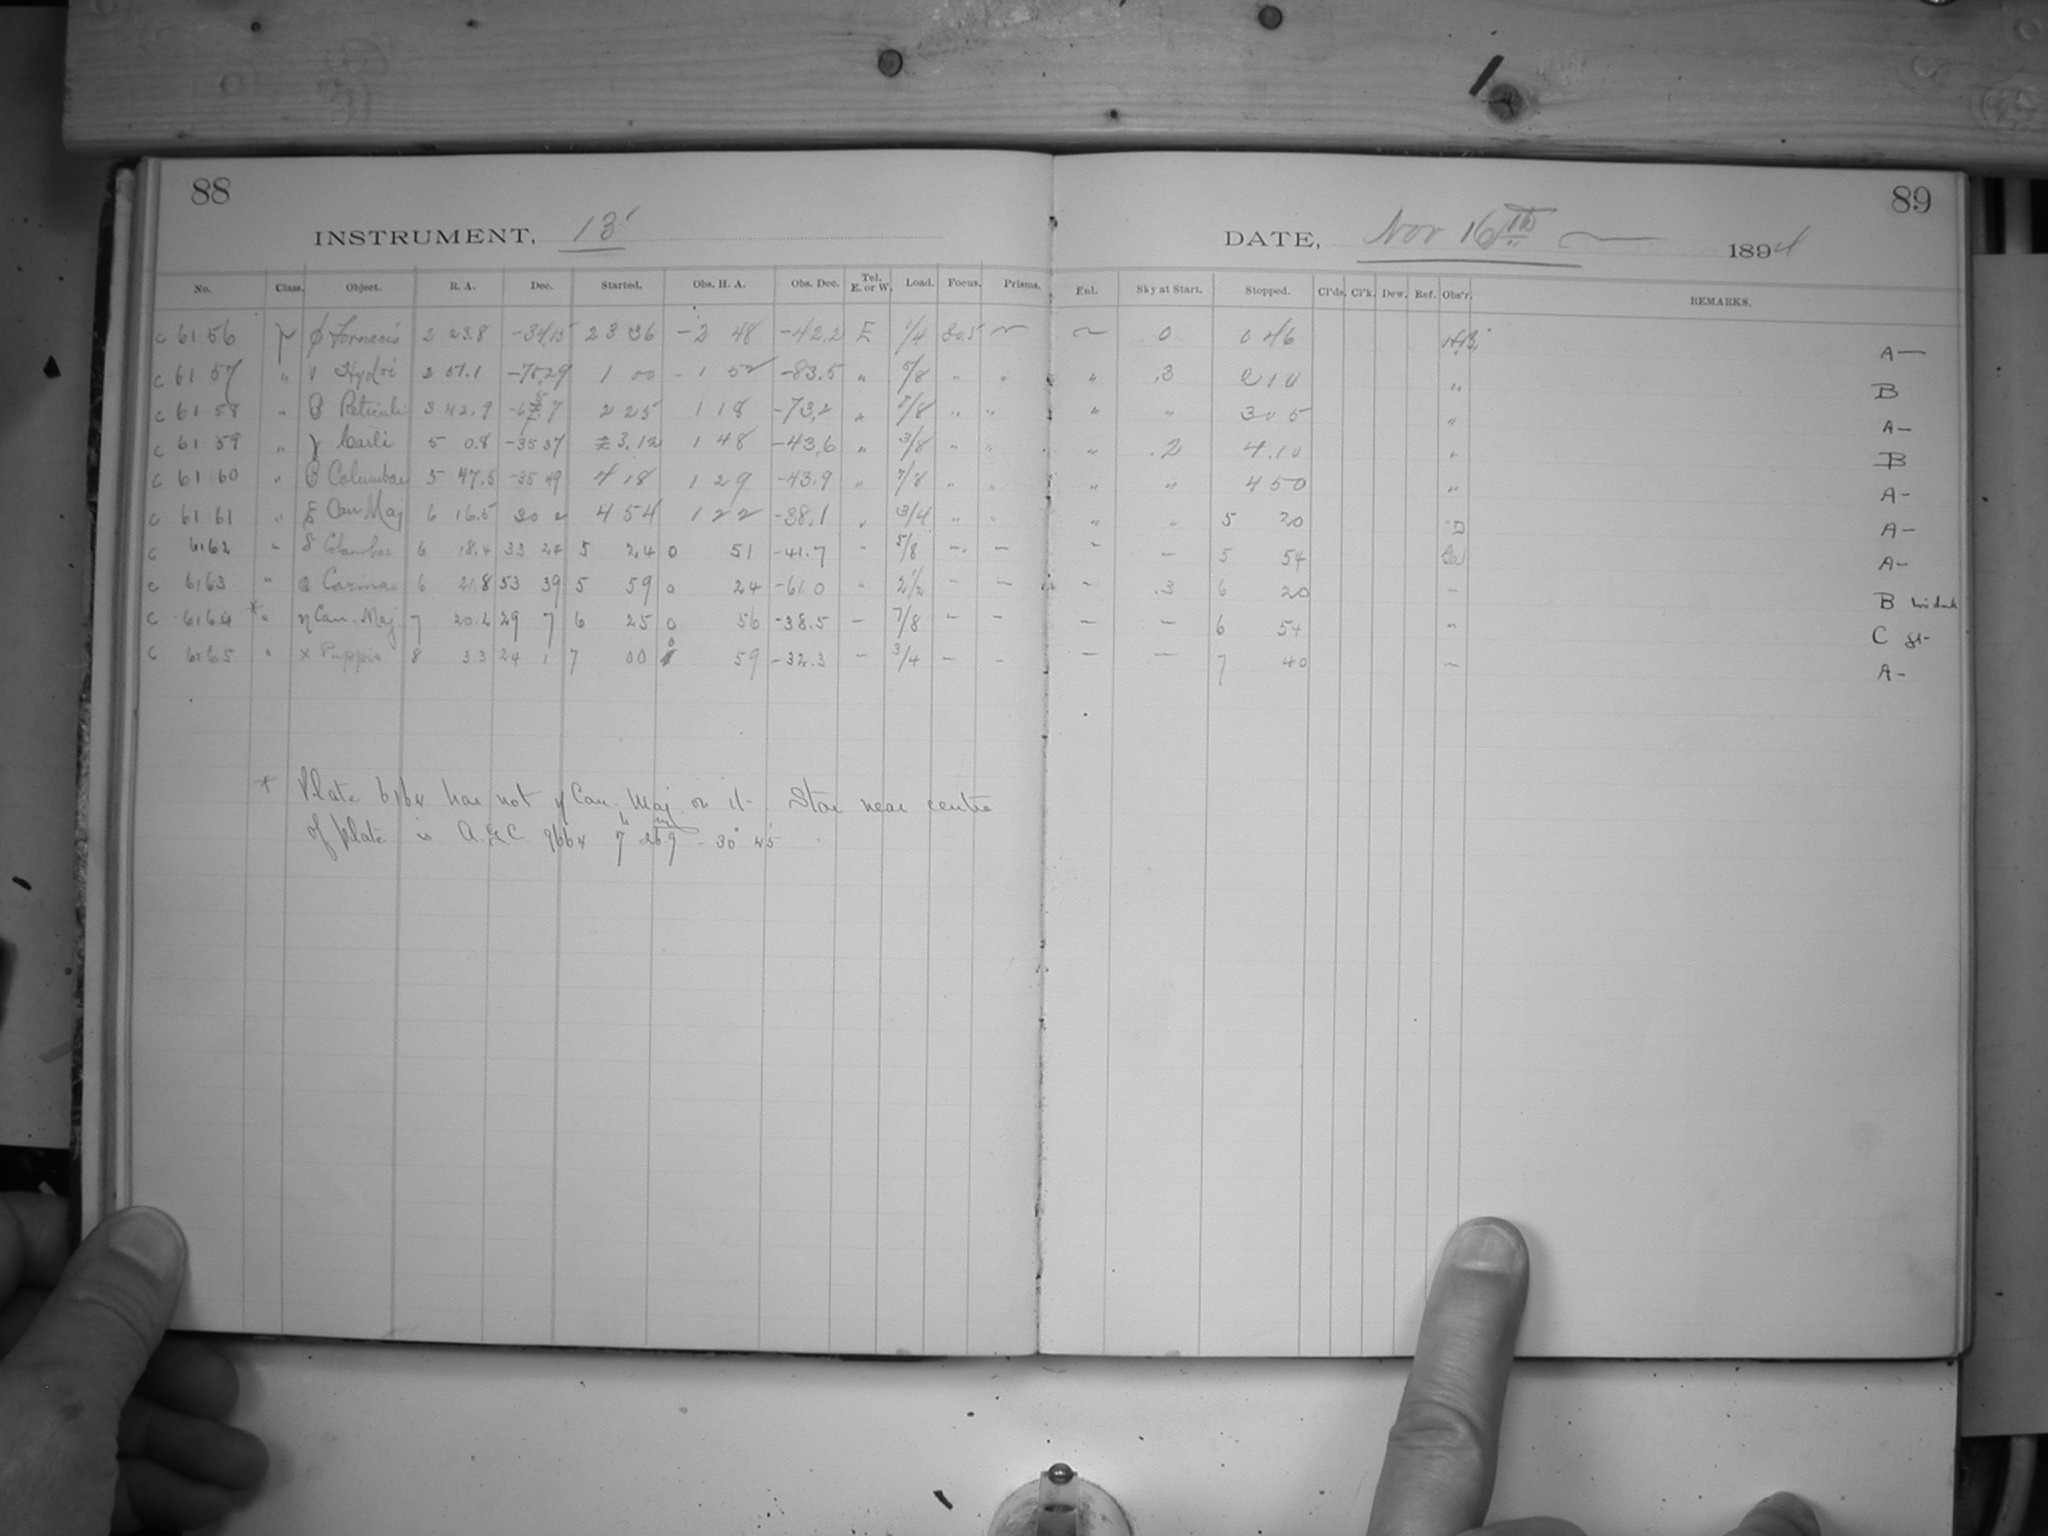 88
89
INSTRUMENT, 13"
DATE, Nov 16th 1894
No. Class. Object. R. A. Dec. Started. Obs. H. A. Obs. Dec. Tel. E. or W. Load. Focus. Prisms. Enl. Sky at Start. Stopped. Cl'ds. Cl'k. Dew. Ref. Obs'r. REMARKS.
c 6156 φ Fornacis 2 23.8 -34 15 23 36 -2 48 -42.2 E 1/4 30.5 0 0 46 A—
c 6157 " ν Hydri -75 29 1 00 -83.5 " 5/8 " " " .3 2 10 " B
c 6158 " β Reticuli 3 42.9 2 25 1 18 -73.2 " 7/8 " " " " 3 05 " A-
c 6159 " γ 5 0.8 -35 37 3.12 1 48 -43.6 " 3/8 " " " .2 4.10 " B
c 6160 " β Columbae 5 47.5 -35 49 4 18 1 29 -43.9 " 7/8 " " " " 4 50 " A-
c 6161 " ξ Can Maj 6 16.5 30 2 4 54 1 22 -38.1 " 3/4 " " " " 5 20 A-
c 6162 " δ Columbae 6 18.4 33 24 5 24 0 51 -41.7 - 5/8 - - - - 5 54 A-
c 6163 " a Carinae 6 21.8 53 39 5 59 0 24 -61.0 " 2 1/2 - - - .3 6 20 - B
c 6164 * " η Can. Maj. 7 20.2 29 7 6 25 0 56 -38.5 - 7/8 - - - - 6 54 " C
c 6165 " x Puppis 8 3.3 24 1 7 00 0 59 -32.3 - 3/4 - - - - 7 40 - A-
* Plate 6164 has not η Can. Maj. on it. Star near centre
of plate is A.G.C. 9664 7h 26.9m - 30° 45'